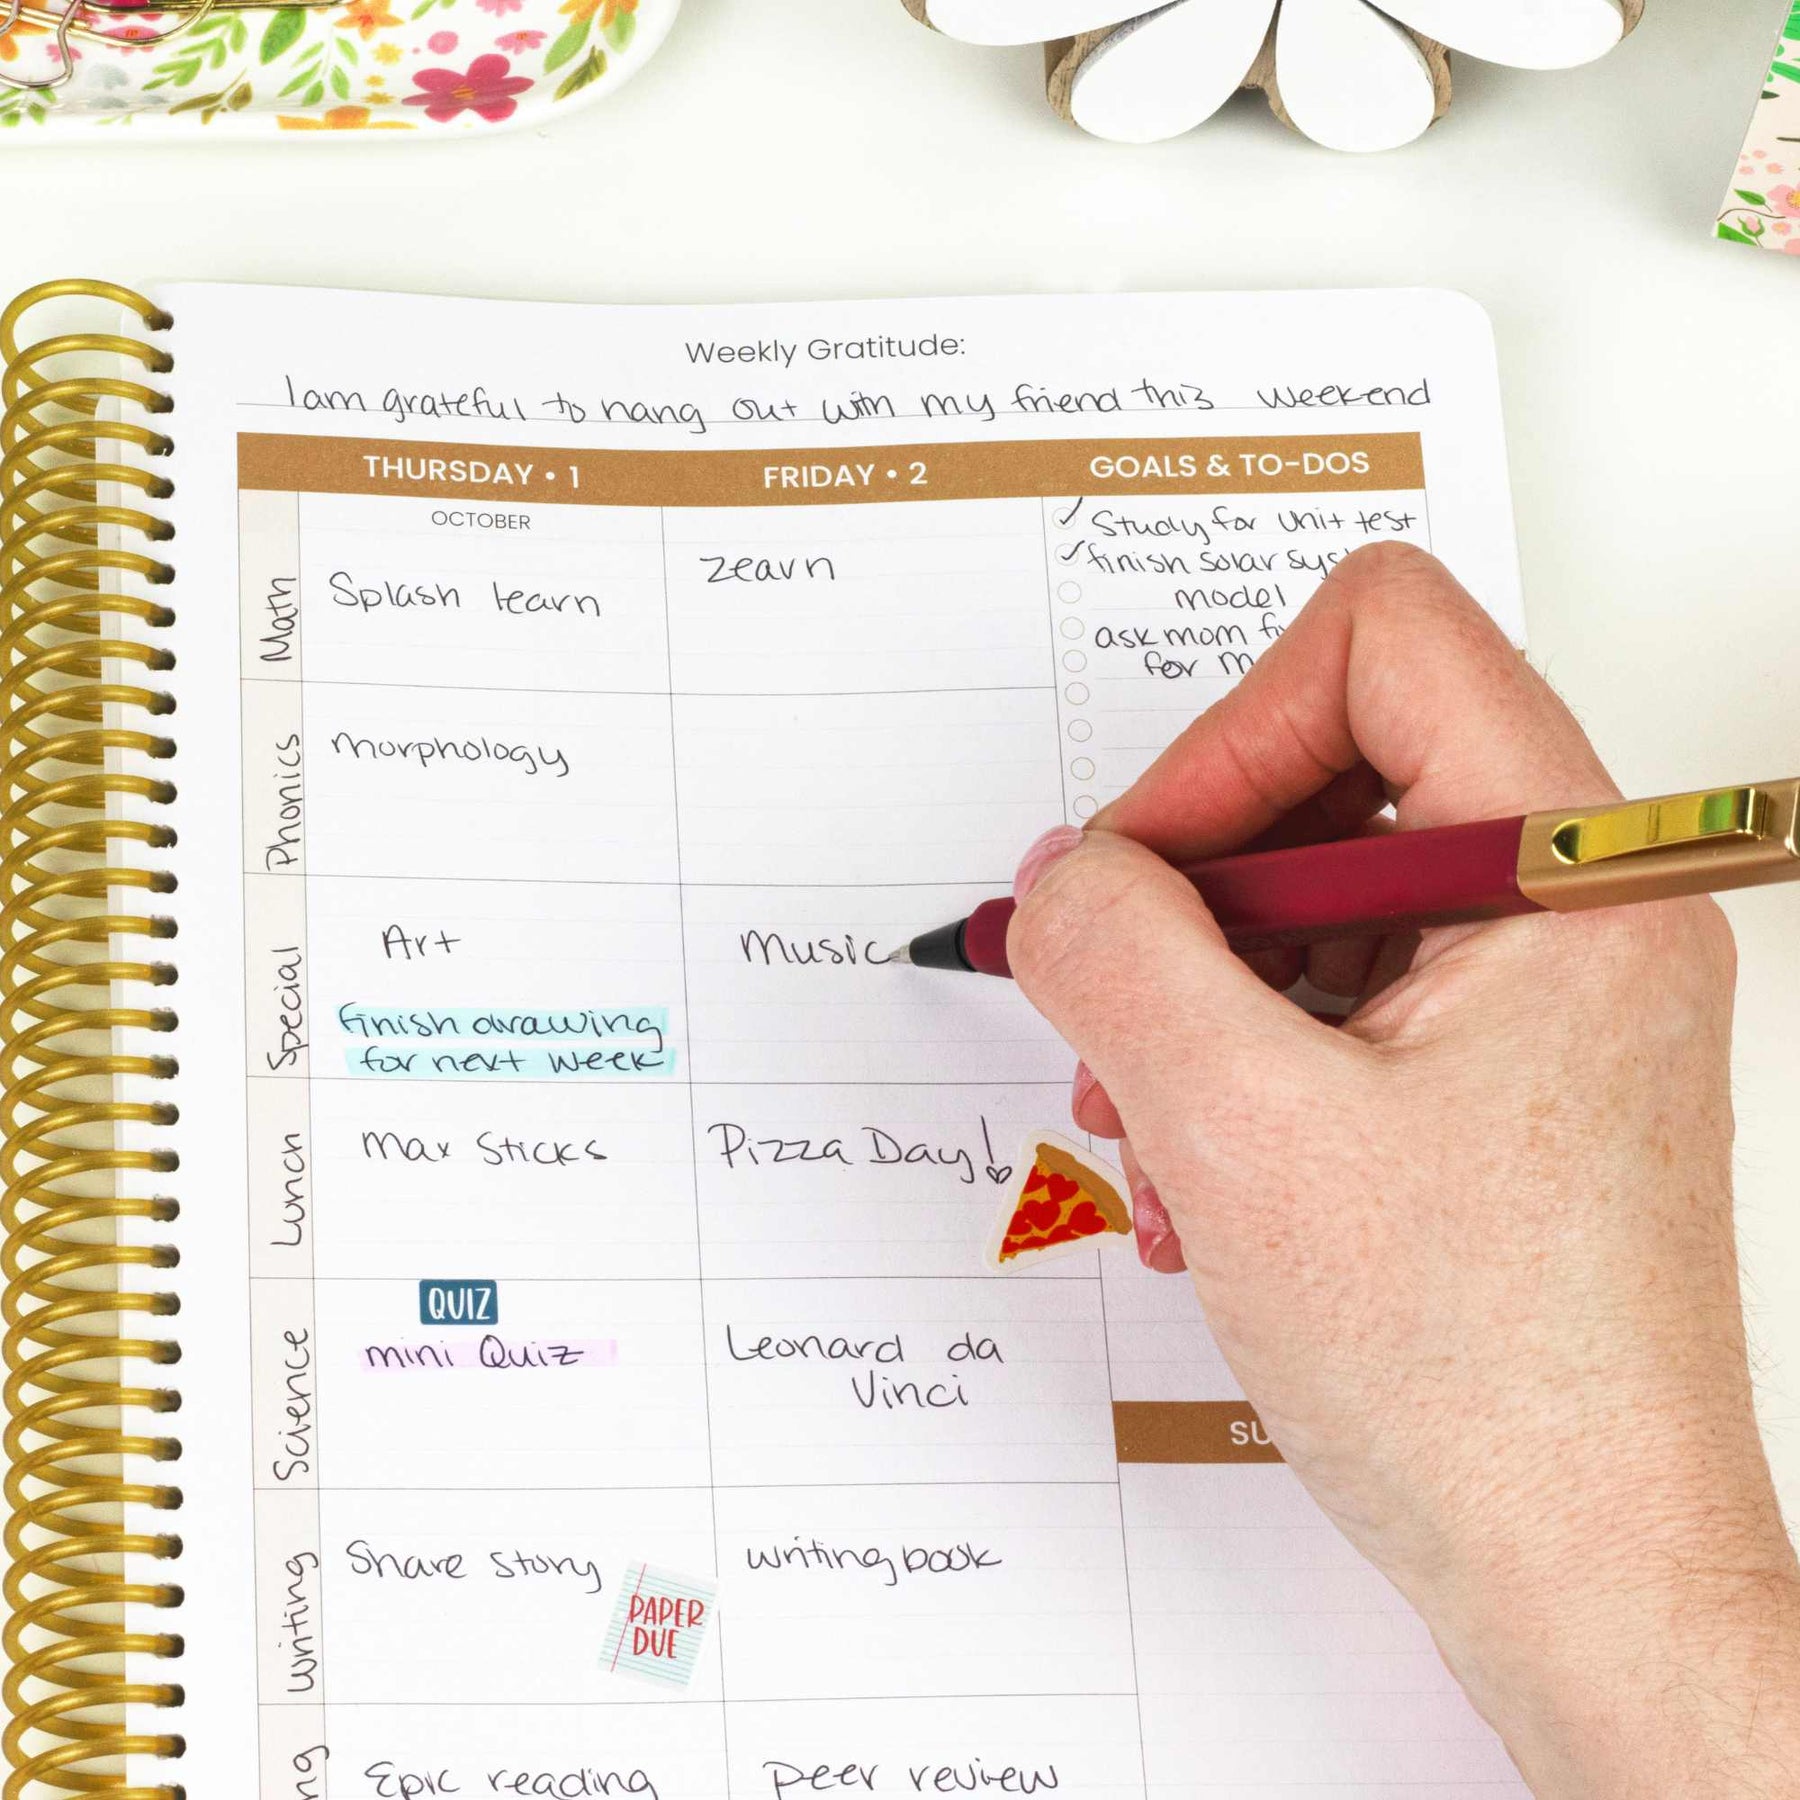 Weekly Gratitude:
I am grateful to hang out with my friend this weekend
THURSDAY • 1
FRIDAY • 2
GOALS & TO-DOS
OCTOBER
Math
Splash learn
zearn
Study for unit test
finish solar
model
ask mom
for
Phonics
morphology
Special
Art
finish drawing
for next week
Music
Lunch
Max Sticks
Pizza Day!
Science
QUIZ
mini Quiz
Leonard da
Vinci
Writing
Share story
PAPER
DUE
writing book
Epic reading
peer review